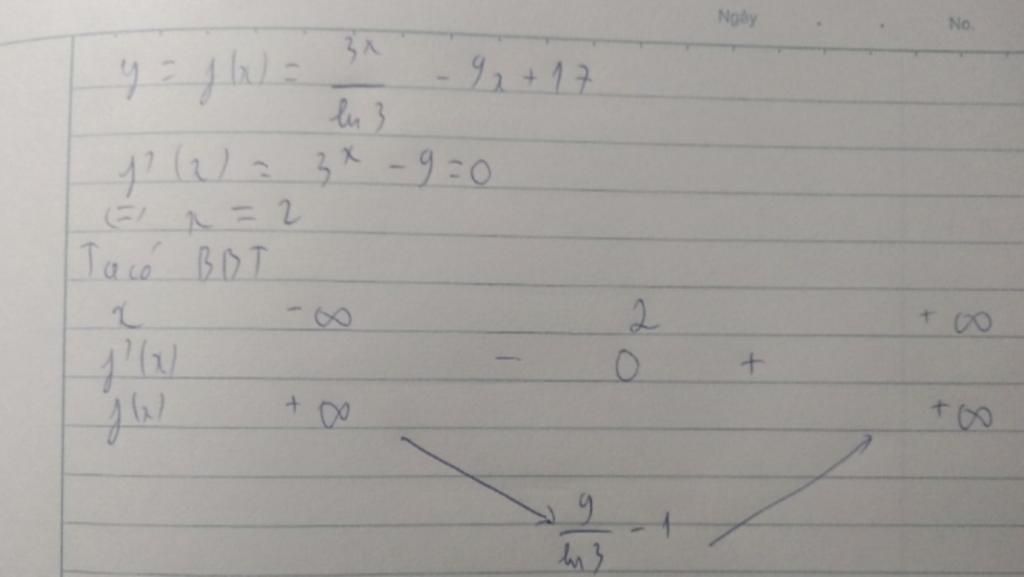 Ngày . . No.
y = f(x) = 3^x / ln 3 - 9x + 17
f'(x) = 3^x - 9 = 0
⇔ x = 2
Ta có BBT
x -∞ 2 +∞
f'(x) - 0 +
f(x) +∞ +∞
9 / ln 3 - 1